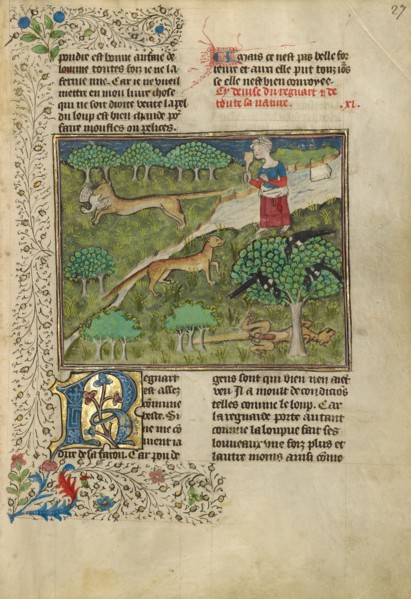 27
poudre est bonne autine de
loiuure toutes fois ie ne la
ferme mie. Car ie ne vueil
mettre en mon liure chose
qui ne soit droite verite la pel
du loup est bien chaude po
faire moufles ou pelices.
Mais ce nest pas belle for
reure et aussi elle put tousiōs
se elle nest bien conroyee.
Cy deuise du regnart ⁊ de
toute sa nature. .xl.
Regnart
est assez
cōmune
beste. Si
ne me cō
uient ia
dire de sa facon. Car pou de
gens sont qui bien nen aiēt
veu. Il a moult de condiciōs
telles comme le loup. Car
la regnarde porte autant
comme la louue fait ses
louueaux vne fois plus et
lautre moins ainsi cōme